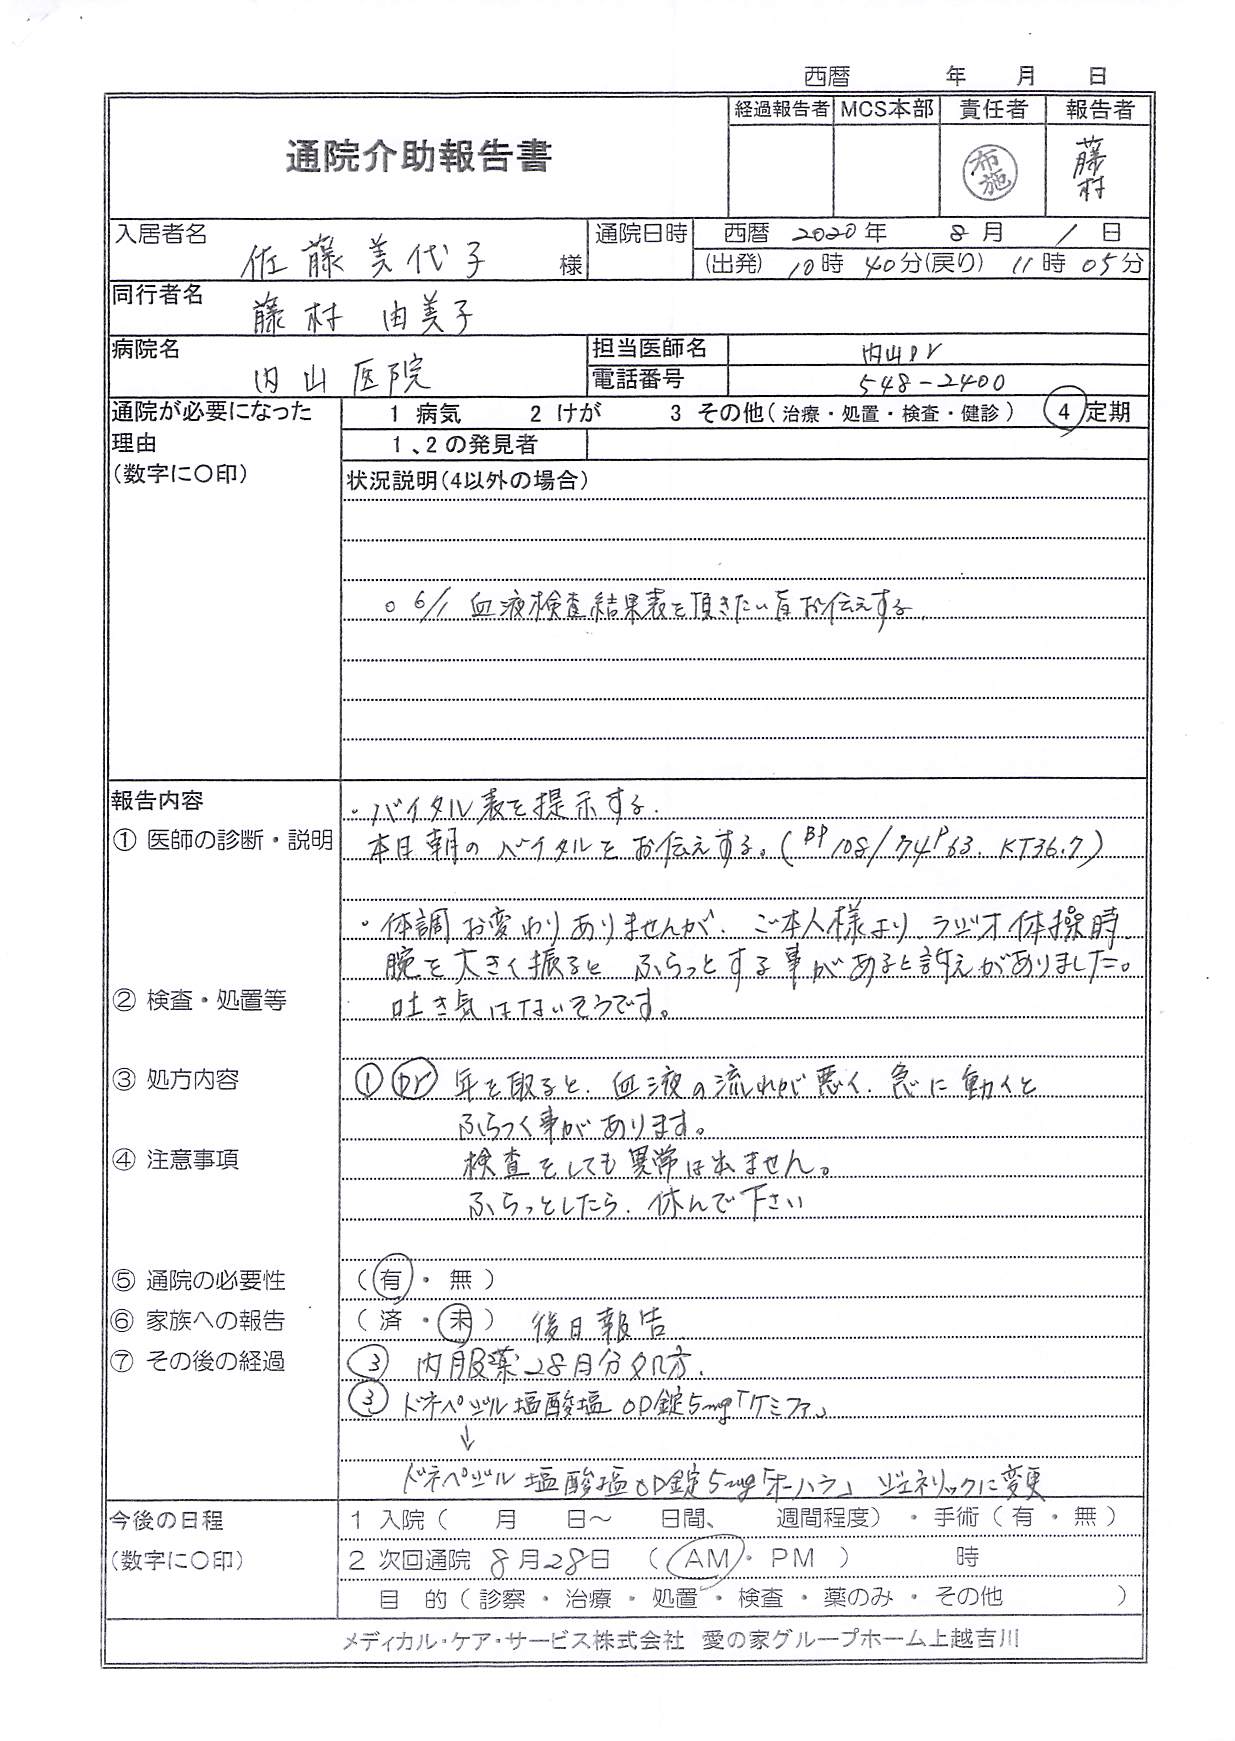 西暦 年 月 日
通院介助報告書
経過報告者 MCS本部 責任者 報告者
布施 藤村
入居者名 佐藤美代子 様
通院日時 西暦 2020年 8月 1日
(出発) 10時 40分(戻り) 11時 05分
同行者名 藤村 由美子
病院名 内山医院
担当医師名 内山Dr
電話番号 548-2400
通院が必要になった理由
(数字に○印)
1 病気 2 けが 3 その他(治療・処置・検査・健診) ④定期
1、2の発見者
状況説明(4以外の場合)
○ 6/1 血液検査結果表を頂きたい旨お伝えする。
報告内容
・バイタル表を提示する.
① 医師の診断・説明
本日朝のバイタルをお伝えする。(BP108/74 P63. KT36.7)
・体調お変わりありませんが、ご本人様より ラジオ体操時
腕を大きく振ると ふらっとする事があると訴えがありました。
② 検査・処置等
吐き気はないそうです。
③ 処方内容
① Dr 年を取ると、血液の流れが悪く、急に動くと
ふらつく事があります。
④ 注意事項
検査をしても異常は出ません。
ふらっとしたら、休んで下さい
⑤ 通院の必要性 (有・無)
⑥ 家族への報告 (済・未) 後日報告
⑦ その後の経過
③ 内服薬28日分処方.
③ ドネペジル塩酸塩OD錠5mg「ケミファ」
↓
ドネペジル塩酸塩OD錠5mg「オーハラ」 ジェネリックに変更
今後の日程
(数字に○印)
1 入院( 月 日~ 日間、 週間程度) ・手術(有・無)
2 次回通院 8月28日 (AM・PM) 時
目 的(診察・治療・処置・検査・薬のみ・その他 )
メディカル・ケア・サービス株式会社 愛の家グループホーム上越吉川